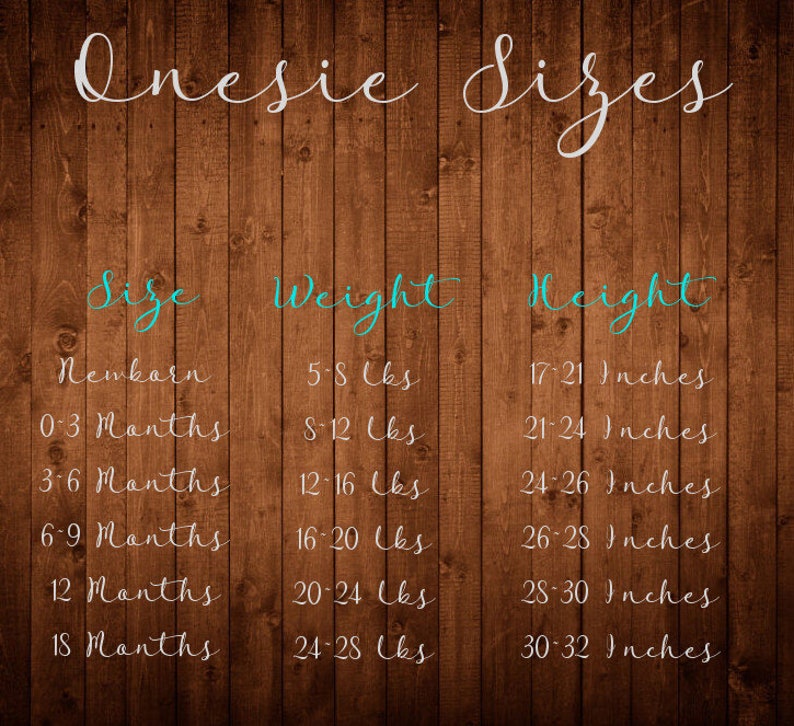 Onesie Sizes
Size Weight Height
Newborn 5-8 Lbs 17-21 Inches
0-3 Months 8-12 Lbs 21-24 Inches
3-6 Months 12-16 Lbs 24-26 Inches
6-9 Months 16-20 Lbs 26-28 Inches
12 Months 20-24 Lbs 28-30 Inches
18 Months 24-28 Lbs 30-32 Inches